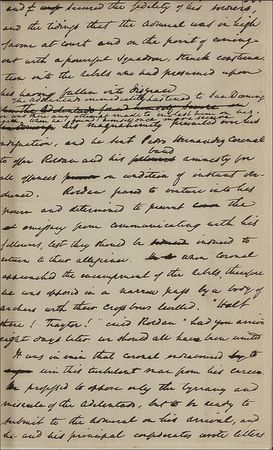 and secured the fidelity of his soldiers,
and the tidings that the admiral was in high
favour at court and on the point of coming
out with a powerful squadron, struck consterna
tion into the rebels who had presumed upon
his having fallen into disgrace
The Adelantado immediately hastened to San Domingo
nor was there any attempt made to molest him on his
his magnanimity prevailed over his
indignation, and he sent Pedro Hernandez Coronal
to offer Roldan and his band amnesty for
all offences on condition of instant obe
dience. Roldan feared to venture into his
power and determined to prevent the
emissary from communicating with his
followers, lest they should be induced to
return to their allegiance. When Coronal
approached the encampment of the rebels, therefore
he was opposed in a narrow pass by a body of
archers with their cross bows levelled. "Halt
there! Traytor!" cried Roldan "had you arrived
eight days later we should all have been united
It was in vain that Coronal endeavoured to
win this turbulent man from his career.
He professed to oppose only the tyranny and
misrule of the Adelantado, but to be ready to
submit to the admiral on his arrival, and
he and his principal confederates wrote letters